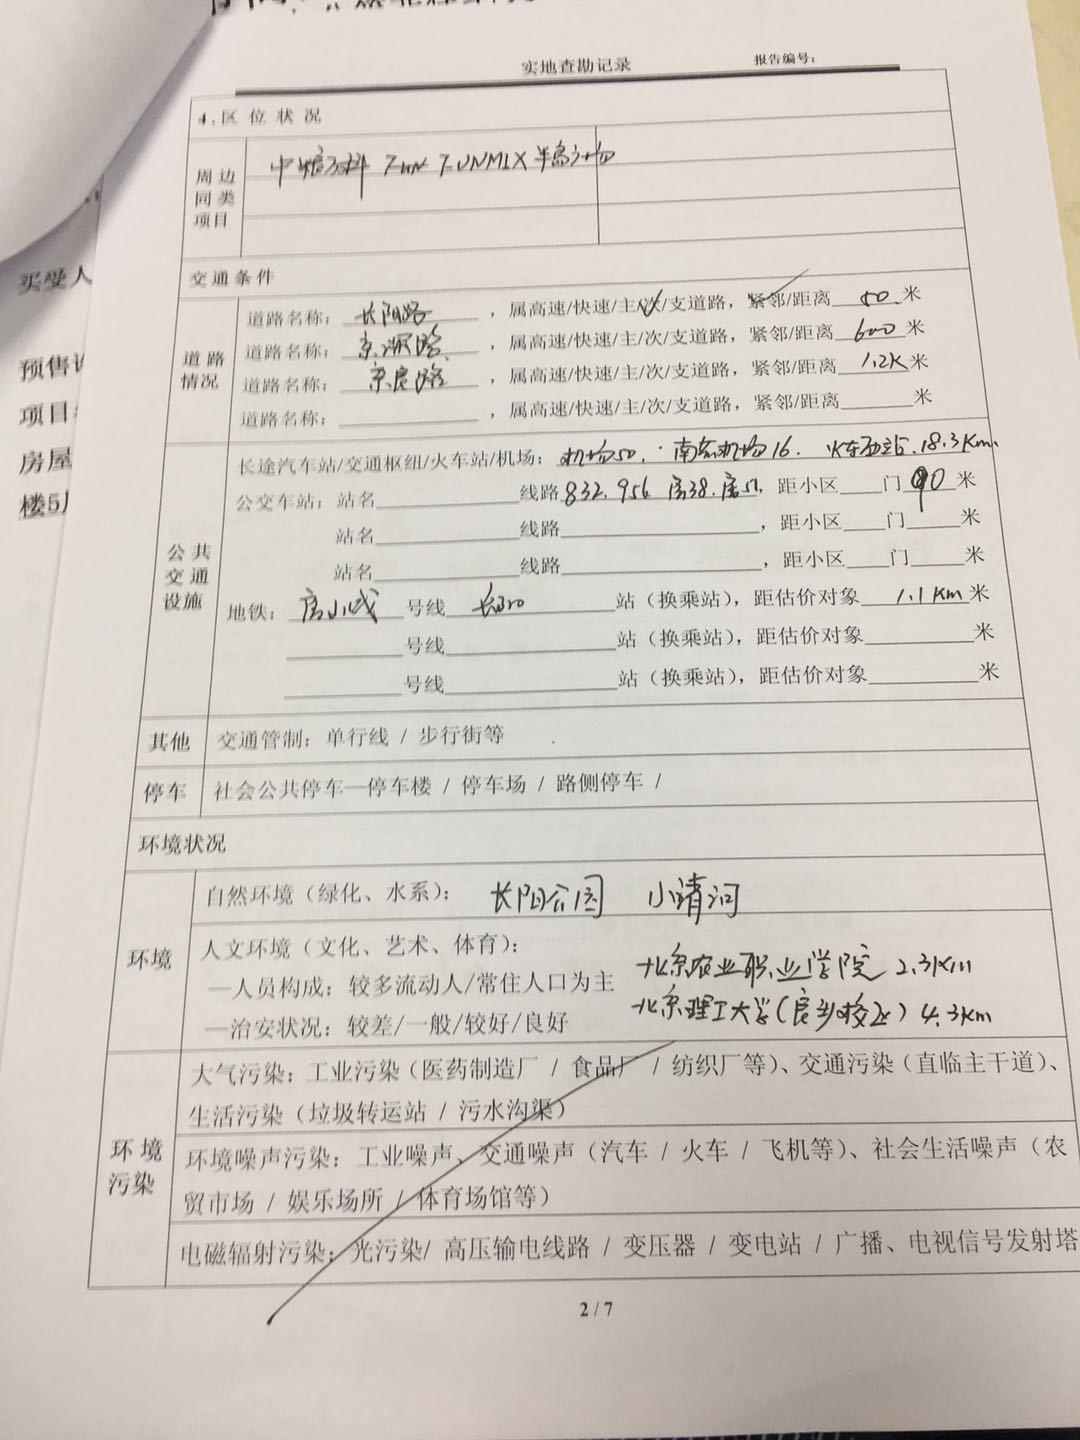 实地查勘记录 报告编号：
4.区位状况
周边同类项目 中粮万科 FUNMIX 半岛广场
交通条件
道路情况
道路名称： 长阳路 ，属高速/快速/主/次/支道路，紧邻/距离 50 米
道路名称： 京深路 ，属高速/快速/主/次/支道路，紧邻/距离 600 米
道路名称： 京良路 ，属高速/快速/主/次/支道路，紧邻/距离 1.2K 米
道路名称： ，属高速/快速/主/次/支道路，紧邻/距离 米
公共交通设施
长途汽车站/交通枢纽/火车站/机场： 机场50. 南苑机场16. 火车西站.18.3Km
公交车站：站名 线路 832.956.房38.房51，距小区 门 90 米
站名 线路 ，距小区 门 米
站名 线路 ，距小区 门 米
地铁： 房山线 号线 站（换乘站），距估价对象 1.1Km 米
号线 站（换乘站），距估价对象 米
号线 站（换乘站），距估价对象 米
其他 交通管制：单行线 / 步行街等
停车 社会公共停车—停车楼 / 停车场 / 路侧停车 /
环境状况
环境
自然环境（绿化、水系）： 长阳公园 小清河
人文环境（文化、艺术、体育）：
—人员构成：较多流动人/常住人口为主 北京农业职业学院 2.3Km
—治安状况：较差/一般/较好/良好 北京理工大学(良乡校区) 4.3Km
环境污染
大气污染：工业污染（医药制造厂 / 食品厂 / 纺织厂等）、交通污染（直临主干道）、
生活污染（垃圾转运站 / 污水沟渠）
环境噪声污染：工业噪声、交通噪声（汽车 / 火车 / 飞机等）、社会生活噪声（农
贸市场 / 娱乐场所 / 体育场馆等）
电磁辐射污染：光污染/ 高压输电线路 / 变压器 / 变电站 / 广播、电视信号发射塔
2 / 7
买受人
预售
项目
房屋
楼5